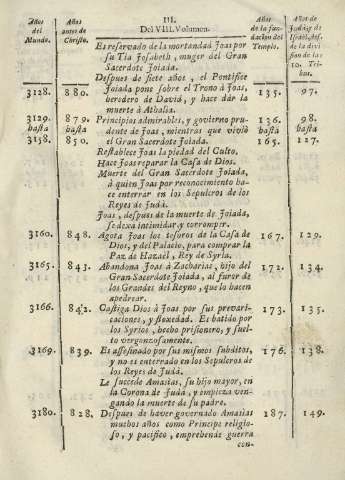 III.
Años del Mundo. Años antes de Christo. Del VIII. Volumen. Años de la fundacion del Templo. Años de Jud. de Israël, des. de la division de las 10. Tribus.
Es reservado de la mortandad Joas por
su Tia Josabeth, muger del Gran
Sacerdote Joiada.
Despues de siete años, el Pontifice
3128. 880. Joiada pone sobre el Trono à Joas, 135. 97.
heredero de David, y hace dár la
muerte à Athalia.
3129. 879. Principios admirables, y govierno pru- 136. 98.
hasta hasta dente de Joas, mientras que vivió hasta hasta
3158. 850. el Gran Sacerdote Joiada. 165. 127.
Restablece Joas la piedad del Culto.
Hace Joas reparar la Casa de Dios.
Muerte del Gran Sacerdote Joiada,
à quien Joas por reconocimiento ha-
ce enterrar en los Sepulcros de los
Reyes de Judá.
Joas, despues de la muerte de Joiada,
se dexa intimidar, y corromper.
3160. 848. Agota Joas los tesoros de la Casa de 167. 129.
Dios, y del Palacio, para comprar la
Paz de Hazaël, Rey de Syria.
3165. 843. Abandona Joas à Zacharias, hijo del 172. 134.
Gran Sacerdote Joiada, al furor de
los Grandes del Reyno, que lo hacen
apedrear.
3166. 842. Castiga Dios à Joas por sus prevari- 173. 135.
caciones, y floxedad. Es batido por
los Syrios, hecho prisionero, y suel-
to vergonzosamente.
3169. 839. Es assesinado por sus mismos subditos, 176. 138.
y no es enterrado en los Sepulcros de
los Reyes de Judá.
Le succede Amasias, su hijo mayor, en
la Corona de Judá, y empieza ven-
gando la muerte de su padre.
3180. 828. Despues de haver governado Amasias 187. 149.
muchos años como Principe religio-
so, y pacifico, emprehende guerra
con-